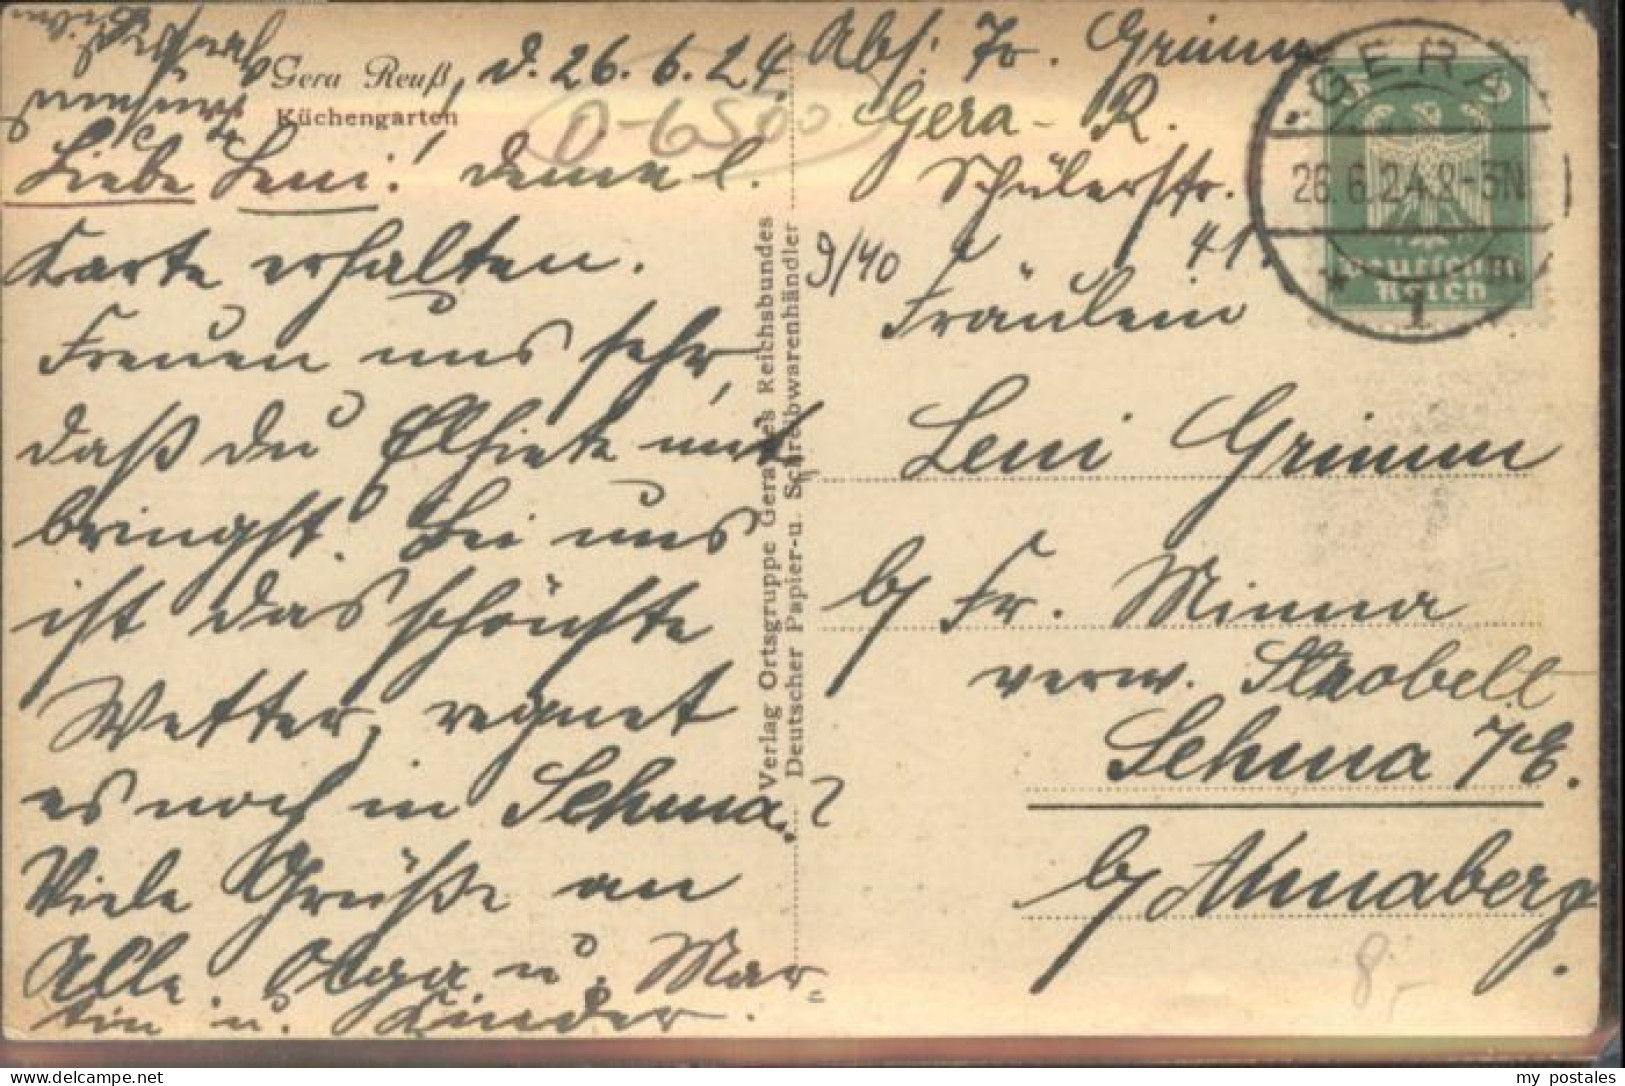 Gera Reuß
Küchengarten
d. 26.6.24.
0-6500
Liebe Leni! deine l.
Karte erhalten.
Freuen uns sehr,
daß du Elsiek mit
bringst. Bei uns
ist das schönste
Wetter, regnet
es noch in Sehma?
Viele Grüße an
Alle. Olga u. Mar-
tin u. Kinder.
Verlag Ortsgruppe Gera des Reichsbundes
Deutscher Papier- u. Schreibwarenhändler
Abs: Fr. Grimm
Gera-R.
Schülerstr.
41.
9/40
GERA
26.6.24.2-3N
* 1 m
5 5
Deutsches
Reich
Fräulein
Leni Grimm
b/ Fr. Minna
verw. Strobell
Sehma i/E.
b/ Annaberg.
8,-
my postales